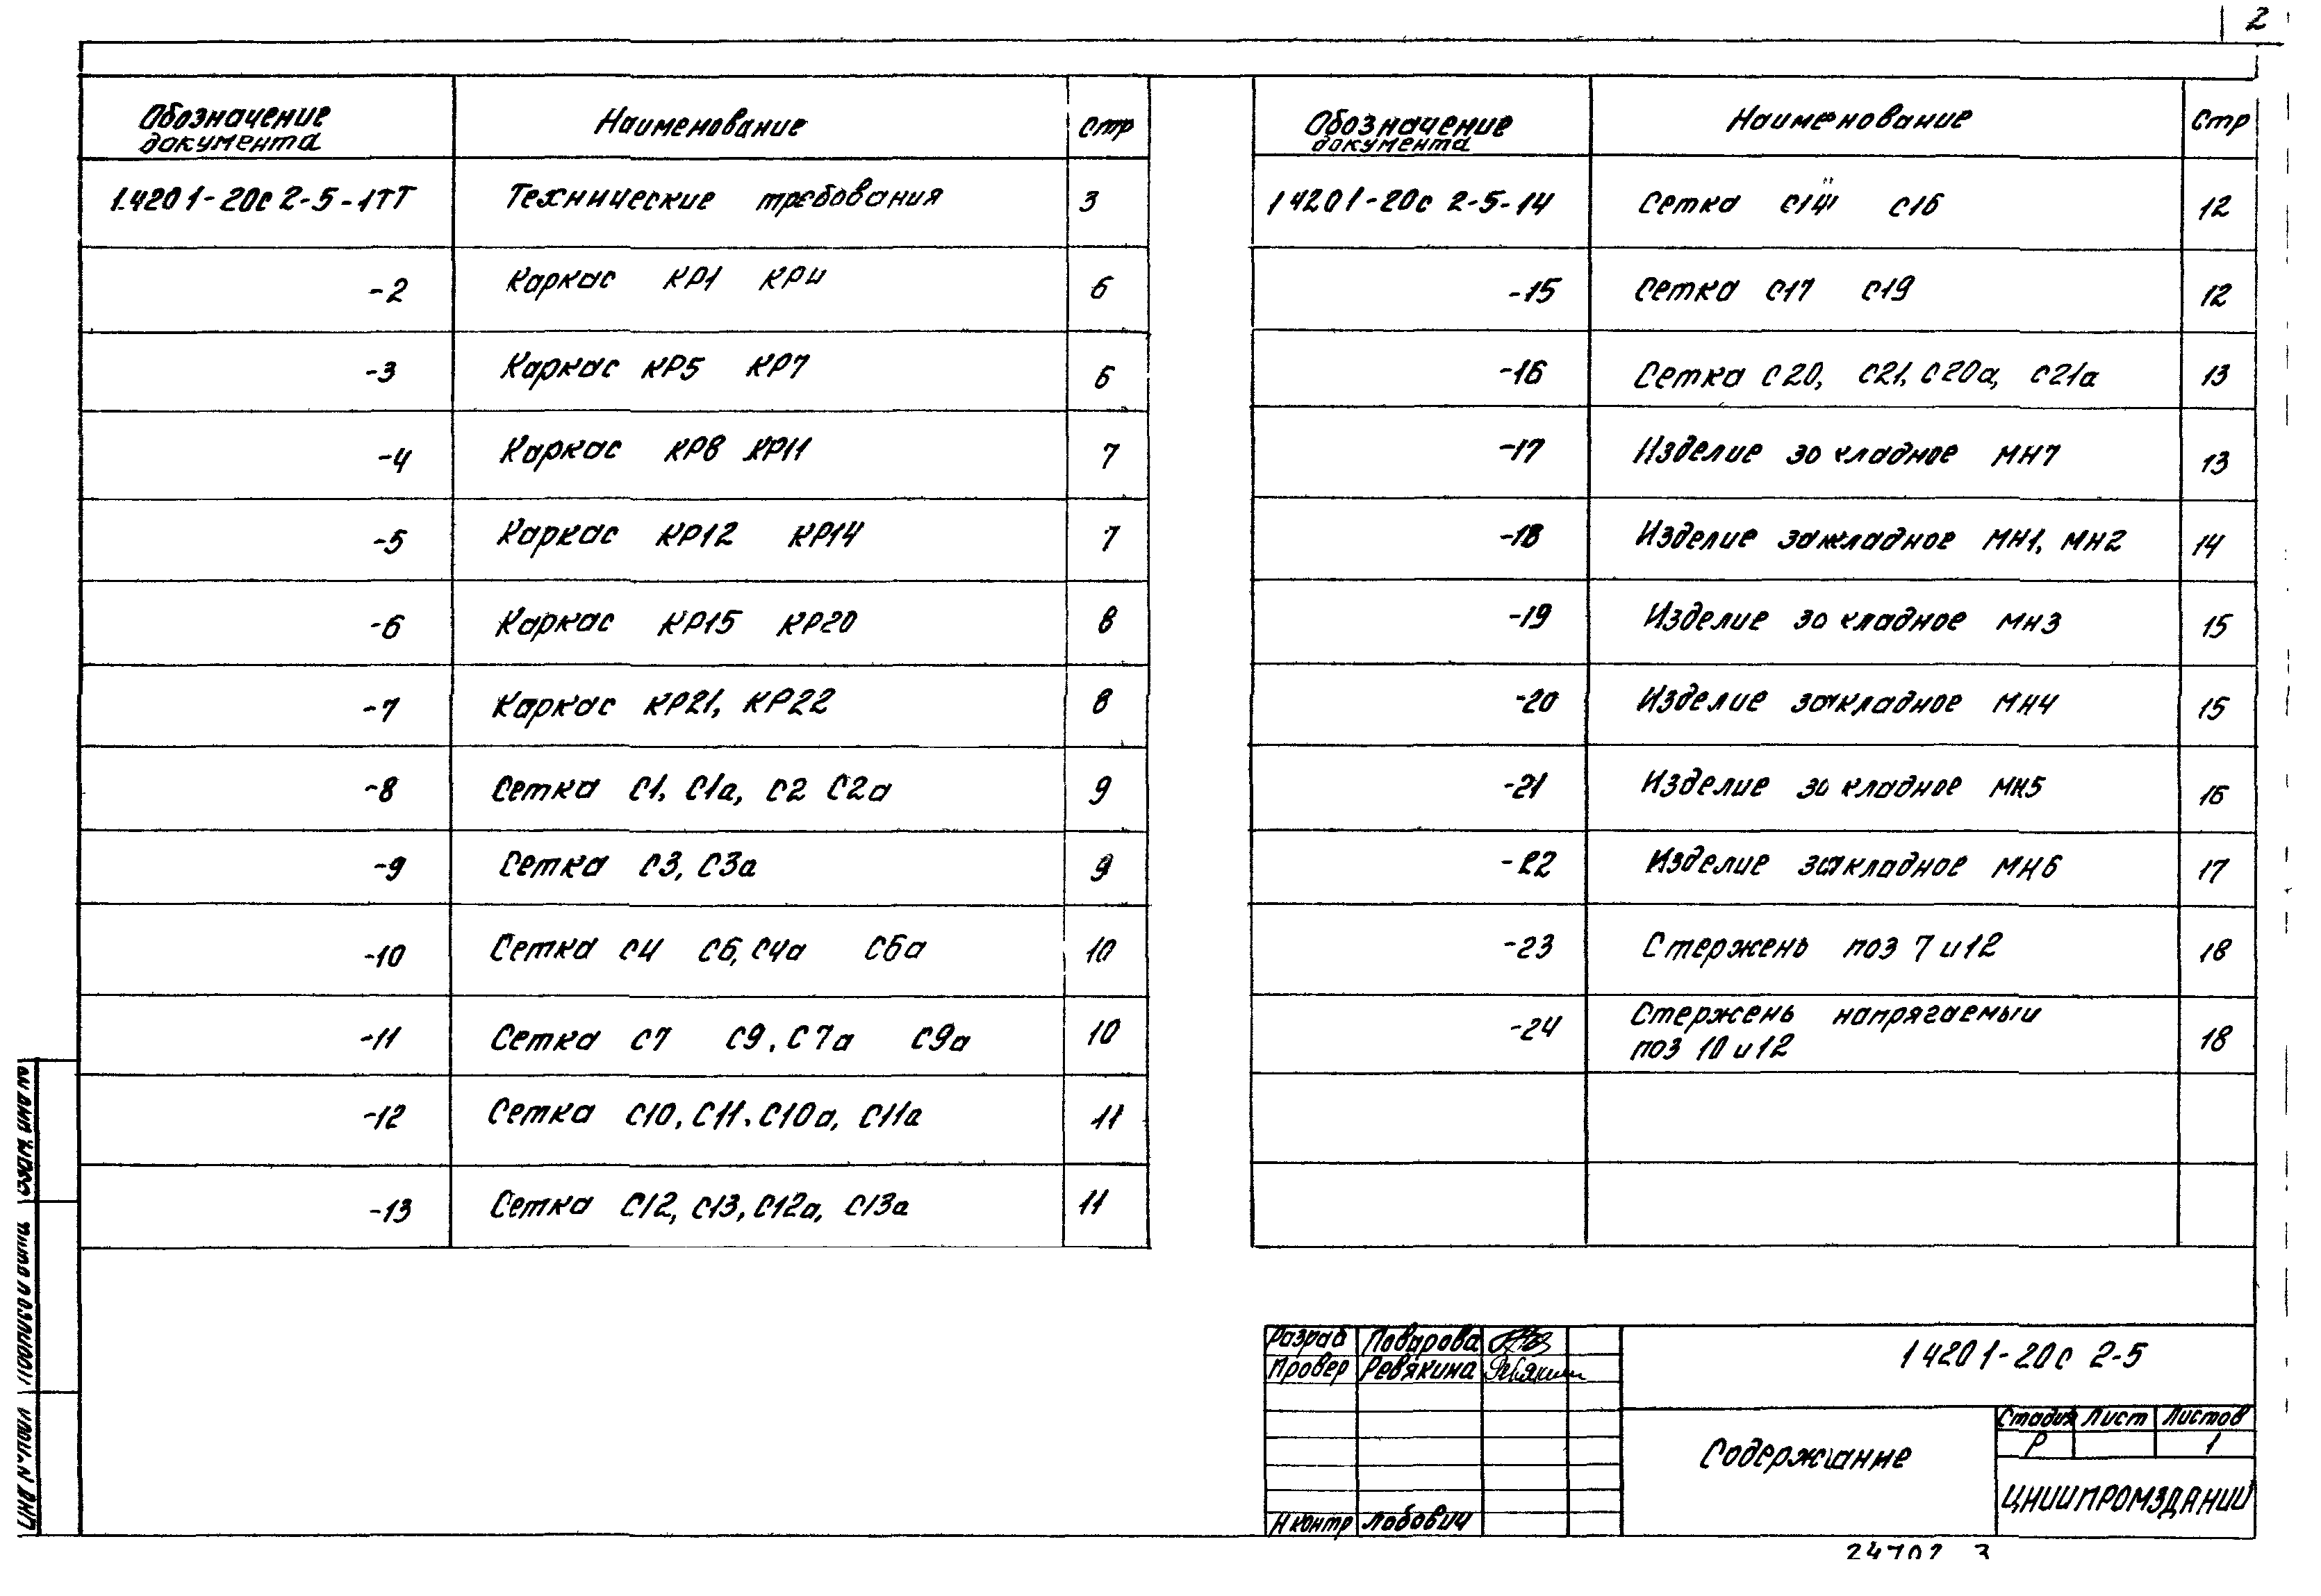 2
Обозначение документа Наименование Стр
1.420 1-20с 2-5-1ТТ Технические требования 3
-2 Каркас КР1 КР4 6
-3 Каркас КР5 КР7 6
-4 Каркас КР8 КР11 7
-5 Каркас КР12 КР14 7
-6 Каркас КР15 КР20 8
-7 Каркас КР21, КР22 8
-8 Сетка С1, С1а, С2 С2а 9
-9 Сетка С3, С3а 9
-10 Сетка С4 С6, С4а С6а 10
-11 Сетка С7 С9, С7а С9а 10
-12 Сетка С10, С11, С10а, С11а 11
-13 Сетка С12, С13, С12а, С13а 11
Обозначение документа Наименование Стр
1 420 1-20с 2-5-14 Сетка С14 С16 12
-15 Сетка С17 С19 12
-16 Сетка С20, С21, С20а, С21а 13
-17 Изделие закладное МН7 13
-18 Изделие закладное МН1, МН2 14
-19 Изделие закладное МН3 15
-20 Изделие закладное МН4 15
-21 Изделие закладное МН5 16
-22 Изделие закладное МН6 17
-23 Стержень поз 7 и 12 18
-24 Стержень напрягаемый
поз 10 и 12 18
Разраб Поварова
Провер Ревякина Ревякин
Н контр Лобович
1 420 1-20с 2-5
Содержание
Стадия Лист Листов
Р 1
ЦНИИПРОМЗДАНИЙ
24702 3
Инв N подл Подпись и дата Взам инв N